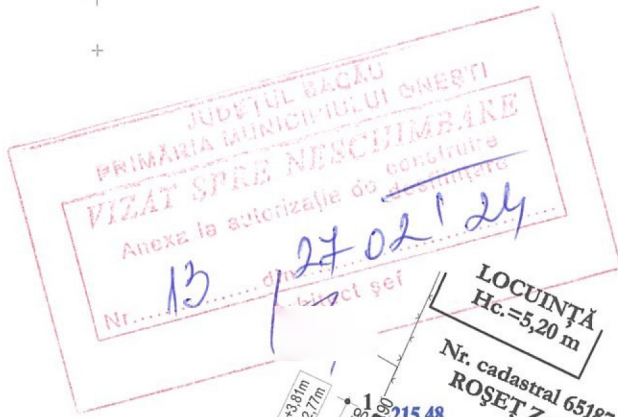 JUDEȚUL BACĂU
PRIMĂRIA MUNICIPIULUI ONEȘTI
VIZAT SPRE NESCHIMBARE
Anexa la autorizație de construire
desființare
Nr. 13 din 27 02 24
șef
LOCUINȚĂ
Hc.=5,20 m
Nr. cadastral
ROȘET
+3,81m
2,77m
1
215.48